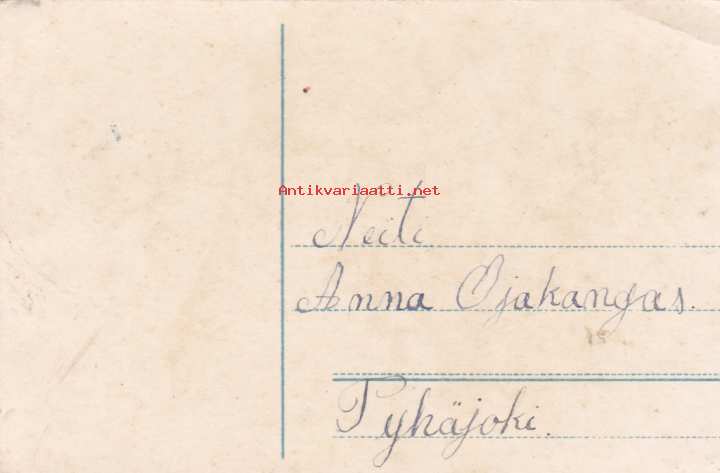 Antikvariaatti.net
Neiti
Anna Ojakangas.
Pyhäjoki.